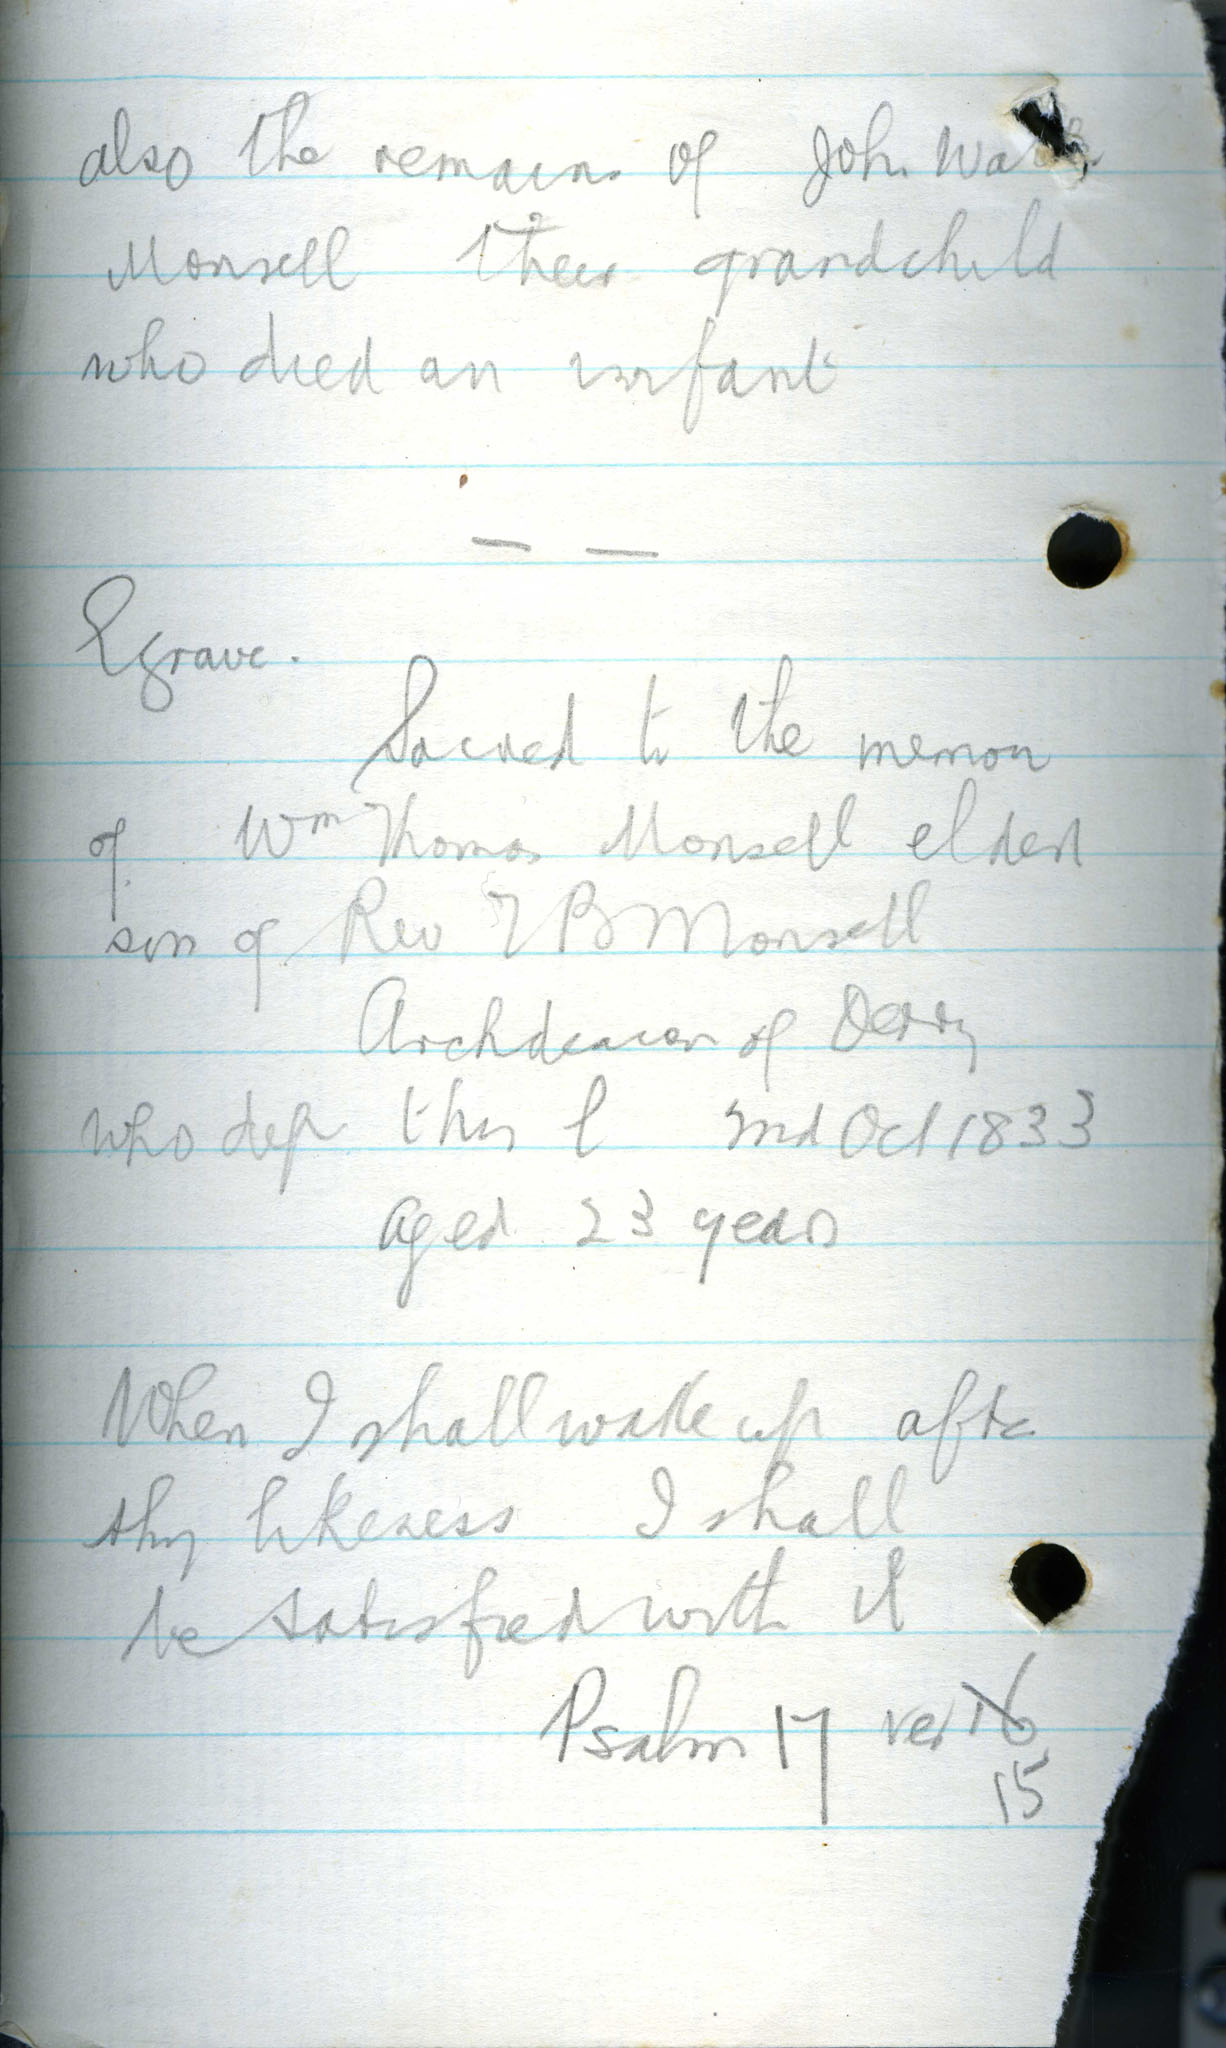 also the remains of John
Monsell their grandchild
who died an infant
— —
grave.
Sacred to the memory
of Wm Thomas Monsell eldest
son of Rev T B Monsell
Archdeacon of Derry
who dep this l 2nd Oct 1833
aged 23 years
When I shall wake up after
thy likeness I shall
be satisfied with it
Psalm 17 ver 16
15